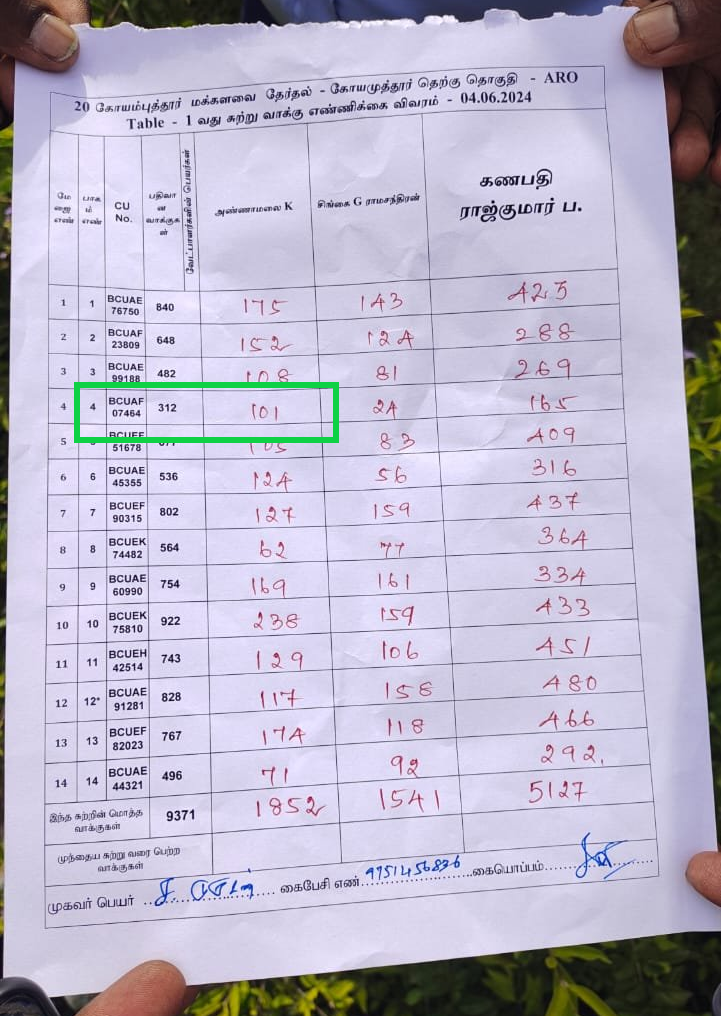 20 கோயம்புத்தூர் மக்களவை தேர்தல் - கோயமுத்தூர் தெற்கு தொகுதி - ARO
Table - 1 வது சுற்று வாக்கு எண்ணிக்கை விவரம் - 04.06.2024
மேஜை எண் பாகம் எண் CU No. பதிவான வாக்குகள் வேட்பாளர்களின் பெயர்கள் அண்ணாமலை K சிங்கை G ராமசந்திரன் கணபதி ராஜ்குமார் ப.
1 1 BCUAE 76750 840 175 143 425
2 2 BCUAF 23809 648 152 124 288
3 3 BCUAE 99188 482 108 81 269
4 4 BCUAF 07464 312 101 24 165
5 51678 105 83 409
6 6 BCUAE 45355 536 124 56 316
7 7 BCUEF 90315 802 127 159 437
8 8 BCUEK 74482 564 62 77 364
9 9 BCUAE 60990 754 169 161 334
10 10 BCUEK 75810 922 238 159 433
11 11 BCUEH 42514 743 129 106 451
12 12* BCUAE 91281 828 117 158 480
13 13 BCUEF 82023 767 174 118 466
14 14 BCUAE 44321 496 71 92 292.
இந்த சுற்றின் மொத்த வாக்குகள் 9371 1852 1541 5127
முந்தைய சுற்று வரை பெற்ற வாக்குகள்
முகவர் பெயர் கைபேசி எண் 9951456836 கையொப்பம்